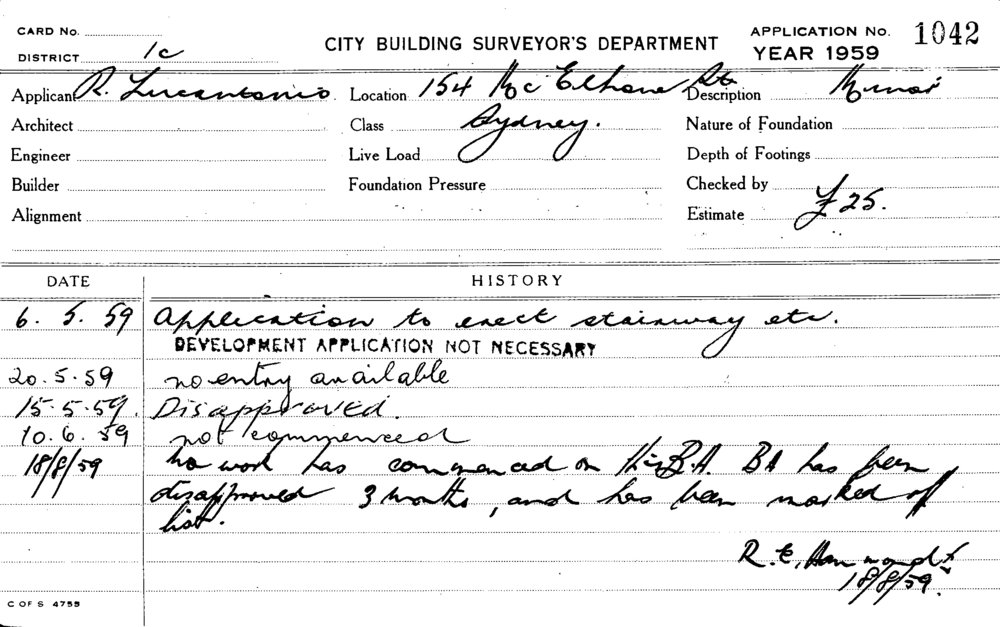 CARD No.
CITY BUILDING SURVEYOR'S DEPARTMENT
APPLICATION No. 1042
DISTRICT 1c
YEAR 1959
Applicant R. Lucantonio Location 154 McElhone St. Description Minor
Architect Class Sydney. Nature of Foundation
Engineer Live Load Depth of Footings
Builder Foundation Pressure Checked by
Alignment Estimate £25.
DATE HISTORY
6. 5. 59 Application to erect stairway etc.
DEVELOPMENT APPLICATION NOT NECESSARY
20.5.59 no entry available
15.5.59. Disapproved.
10.6.59 not commenced
18/8/59 no work has commenced on this B.A. BA has been
disapproved 3 months, and has been marked off
list.
R. E. Hammond
18/8/59.
C OF S 4755